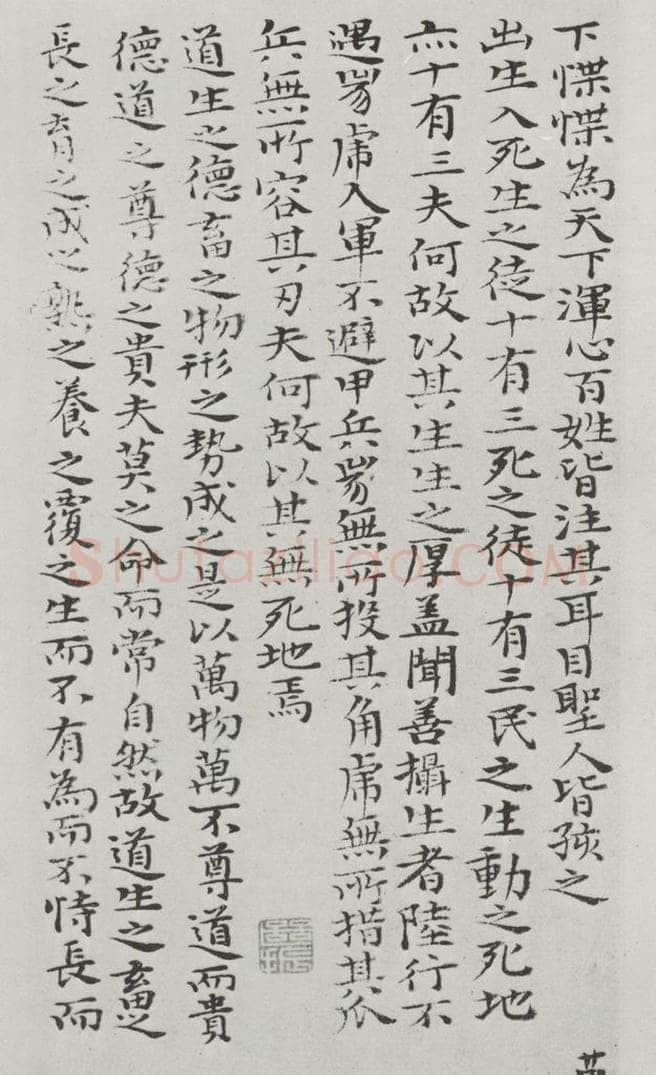 下惵惵為天下渾心百姓皆注其耳目聖人皆孩之
出生入死生之徒十有三死之徒十有三民之生動之死地
亦十有三夫何故以其生生之厚盖聞善攝生者陸行不
遇兕虎入軍不避甲兵兕無所投其角虎無所措其爪
兵無所容其刃夫何故以其無死地焉
道生之德畜之物形之勢成之是以萬物萬不尊道而貴
德道之尊德之貴夫莫之命而常自然故道生之畜之
長之育之成之熟之養之覆之生而不有為而不恃長而
Shufaziliao.COM